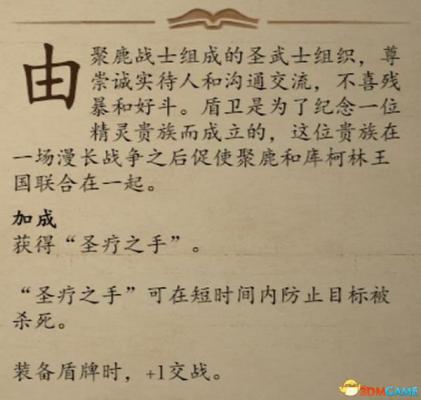 由聚鹿战士组成的圣武士组织，尊
崇诚实待人和沟通交流，不喜残
暴和好斗。盾卫是为了纪念一位
精灵贵族而成立的，这位贵族在
一场漫长战争之后促使聚鹿和库柯林王
国联合在一起。
加成
获得“圣疗之手”。
“圣疗之手”可在短时间内防止目标被
杀死。
装备盾牌时，+1交战。
3DMGAME